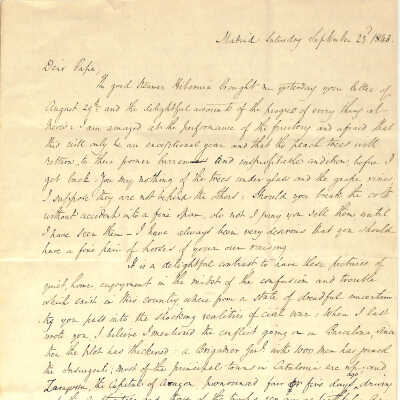 Madrid Saturday September 23d 1843.
Dear Papa,
The good Steamer Hibernia brought me yesterday your letter of
August 29th and the delightful accounts of the progress of every thing at
home: I am amazed at the performance of the fruitery and afraid that
this will only be an exceptional year and that the peach trees will
return to their former barren and unfruitful condition before I
get back. You say nothing of the trees under glass and the grape vines;
I suppose they are not behind the others: Should you break the colts
without accident into a fine span, do not I pray you sell them until
I have seen them — I have always been very desirous that you should
have a fine pair of horses of your own raising
It is a delightful contrast to have these pictures of
quiet, home enjoyment in the midst of the confusion and trouble
which exist in this country, where from a state of dreadful uncertain
ty you pass into the shocking realities of civil war: When I last
wrote you I believe I mentioned the conflict going on in Barcelona, since
then the plot has thickened: a Brigadier Genl. with 1000 men has joined
the Insurgents; most of the principal towns in Catalonia are up; and
Zaragoza, the Capital of Aragon, pronounced four or five days ago, driving